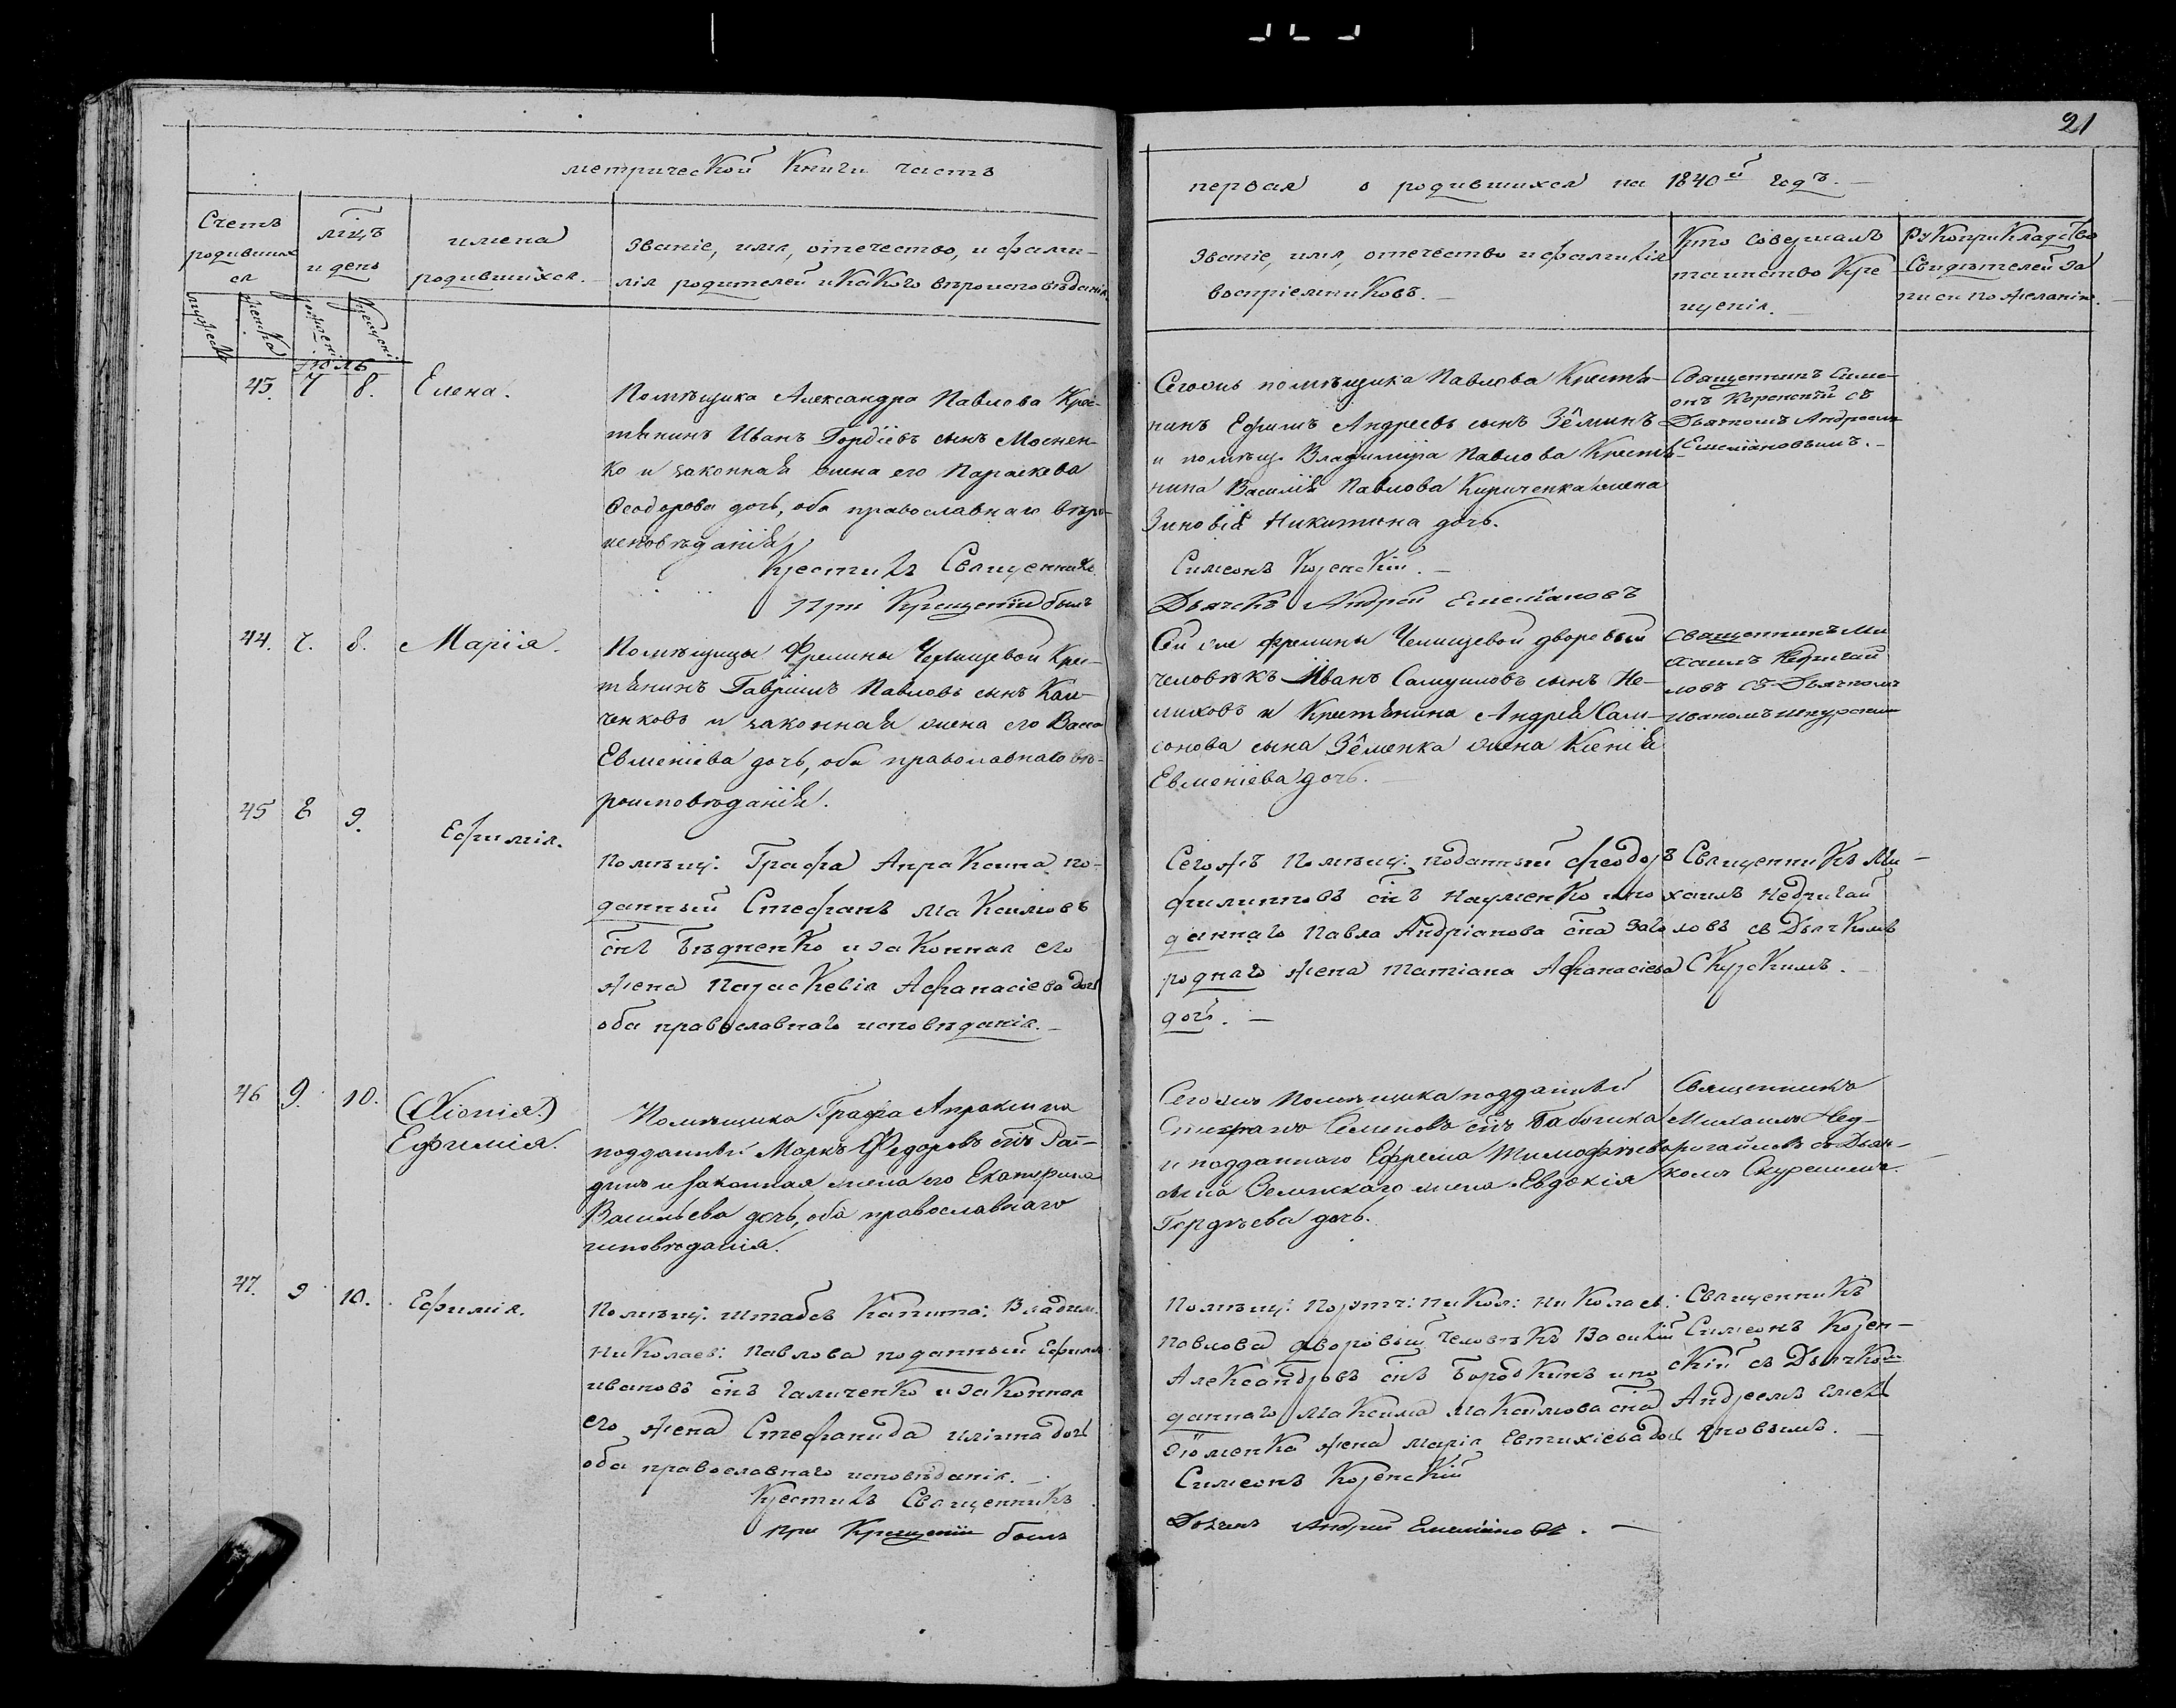 21
метрической книги часть
первая о родившихся на 1840й годъ.
Счетъ
родивших
ся
мужеска
женска
мцъ
и день
рожденія
крещенія
имена
родившихся.
Званіе, имя, отечество, и фами-
лія родителей и какого вѣроисповѣданія
Званіе, имя, отечество и фамилія
воспріемниковъ.
Кто совершалъ
таинство Кре
щенія.
Рукоприкладство
свидѣтелей за
писи по желанію.
Юль
43. 7 8. Елена.
Помѣщика Александра Павлова Крес-
тянинъ Иванъ Гордіевъ сынъ Моснен-
ко и законная жена его Параскева
Ѳеодорова дочь, оба православнаго вѣро-
исповѣданія
Крестилъ Священникъ
При Крещеніи былъ
Сегожъ помѣщика Павлова Крестя-
нинъ Ефимъ Андреевъ сынъ Зёминъ
и помѣщ. Владиміра Павлова Крестя-
нина Василія Павлова Кириченка жена
Зиновія Никитина дочь.
Симеонъ Коренскій.
Дьячекъ Андрей Емеліановъ
Священникъ Симе-
онъ Коренскій съ
Дьячкомъ Андреемъ
Емеліановымъ.
44. 7. 8. Марія.
Помѣщицы Фрелины Челищевой Крес-
тянинъ Гавріилъ Павловъ сынъ Кал-
ченковъ и законная жена его Васса
Евменіева дочь, оба православнаго вѣ-
роисповѣданія.
Сей же фрелины Челищевой дворовый
человѣкъ Иванъ Самуиловъ сынъ Не-
лиховъ и Крестянина Андрея Сам-
сонова сына Зёменка жена Ксенія
Евменіева дочь.
Священникъ Ми
хаилъ Недригай
ловъ съ Дьячкомъ
Иваномъ
45 8 9. Ефимія.
Помѣщ: Графа Апраксина по-
данный Стефанъ Максимовъ
снъ Бѣдненко и законная его
жена Параскевія Афанасіева дочь
оба православнаго исповѣданія.
Сегожъ Помѣщ: поданный Феодоръ
Филипповъ снъ Науменко и по
даннаго Павла Андріанова сна Заго
роднаго жена Татіана Афанасіева
дочь.
Священникъ Ми-
хаилъ Недригай
ловъ съ Дьячкомъ
Скурскимъ.
46 9. 10. (Хіонія.)
Ефимія.
Помѣщика Графа Апраксина
подданный Маркъ Федоровъ снъ Рат-
динъ и законная жена его Екатерина
Васильева дочь, оба православнаго
исповѣданія.
Сегожъ Помѣщика подданный
Семеновъ снъ Бабошка
и подданнаго Ефрема Тимофѣева
сына Зелинскаго жена Евдокія
Гордѣева дочь.
Священникъ
Михаилъ Нед-
ригайловъ съ Дьяч-
комъ Скурскимъ.
47. 9 10. Ефимія.
Помѣщ: Штабсъ Капита: Владим.
Николаев: Павлова поданный Ефимъ
Ивановъ снъ Галиченко и законная
его жена Стефанида Иліина дочь
оба православнаго исповѣданія.
Крестилъ Священникъ
при Крещеніи былъ
Помѣщ: Порутч: Никол: Николаев:
Павлова дворовый человѣкъ Василій
Александровъ снъ Бородкинъ и по
даннаго Максима Максимова сна
Зіоменка жена Марія Евтихіева дочь
Симеонъ Коренскій
Дьячекъ Андрей Емеліановъ.
Священникъ
Симеонъ Корен-
скій съ Дьячкомъ
Андреемъ Емель
яновымъ.